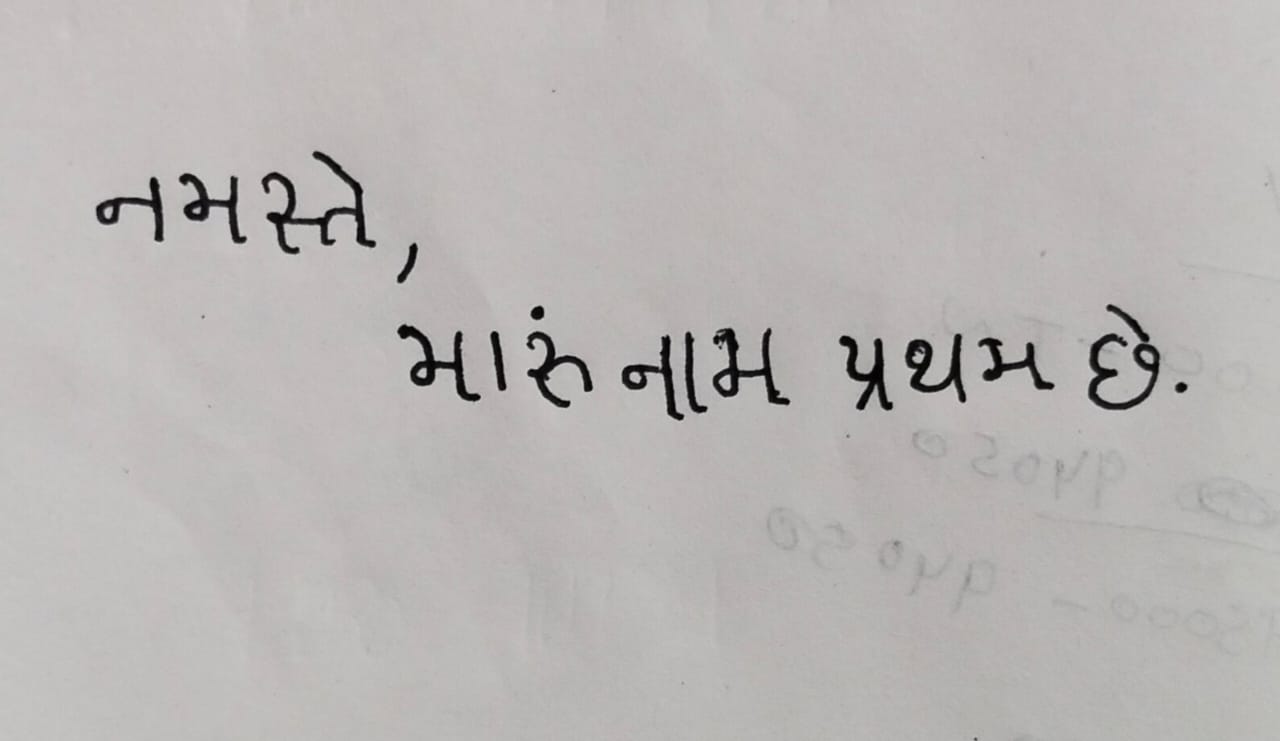 નમસ્તે,
મારું નામ પ્રથમ છે.